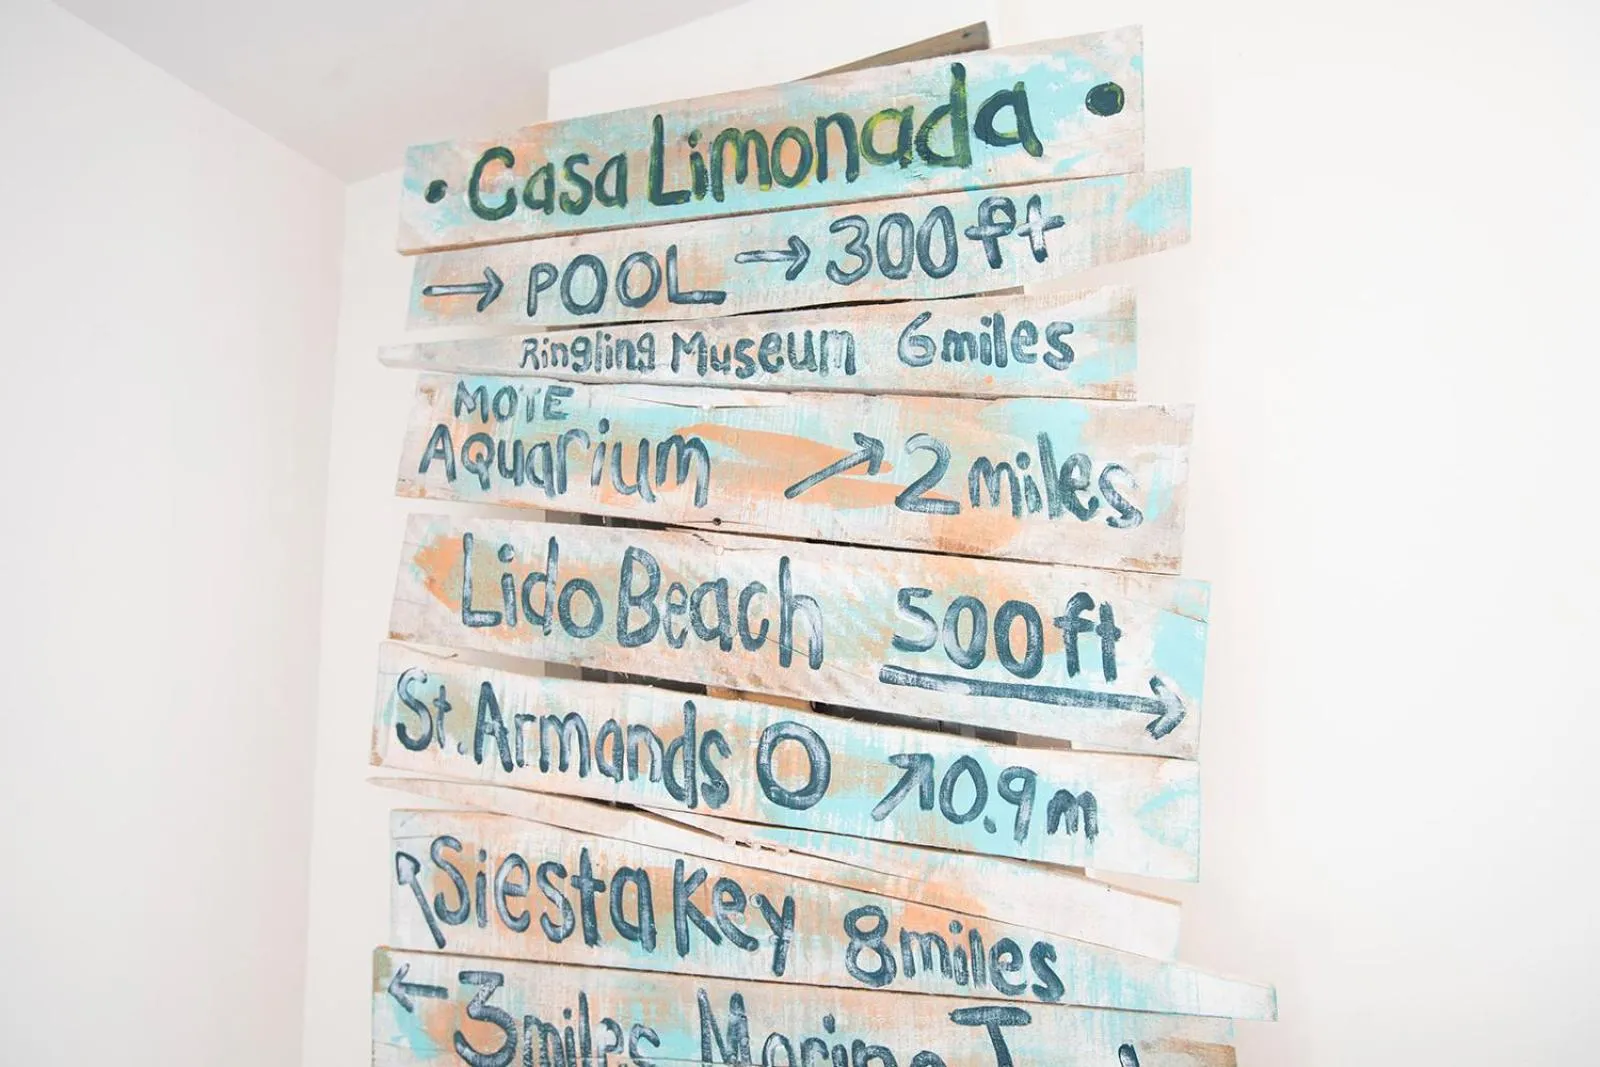 • Casa Limonada •
→ POOL → 300ft
Ringling Museum 6miles
MOTE
Aquarium ↗ 2miles
Lido Beach 500ft →
St. Armands O ↗ 0.9m
↖ Siesta Key 8miles
← 3miles Marina